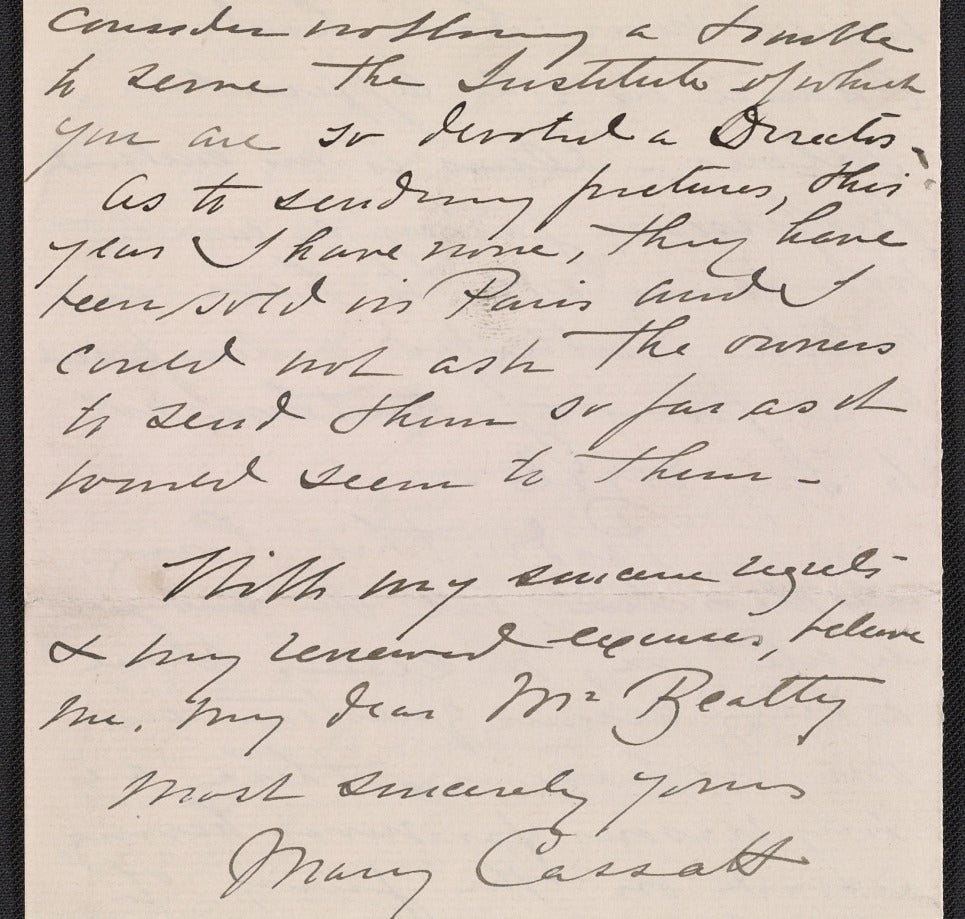 consider nothing a trouble
to serve the Institute of which
you are so devoted a Director.
As to sending pictures, this
year I have none, they have
been sold in Paris and I
could not ask the owners
to send them so far as it
would seem to them -
With my sincere regrets
& my renewed excuses, believe
me, my dear Mr Beatty
most sincerely yours
Mary Cassatt